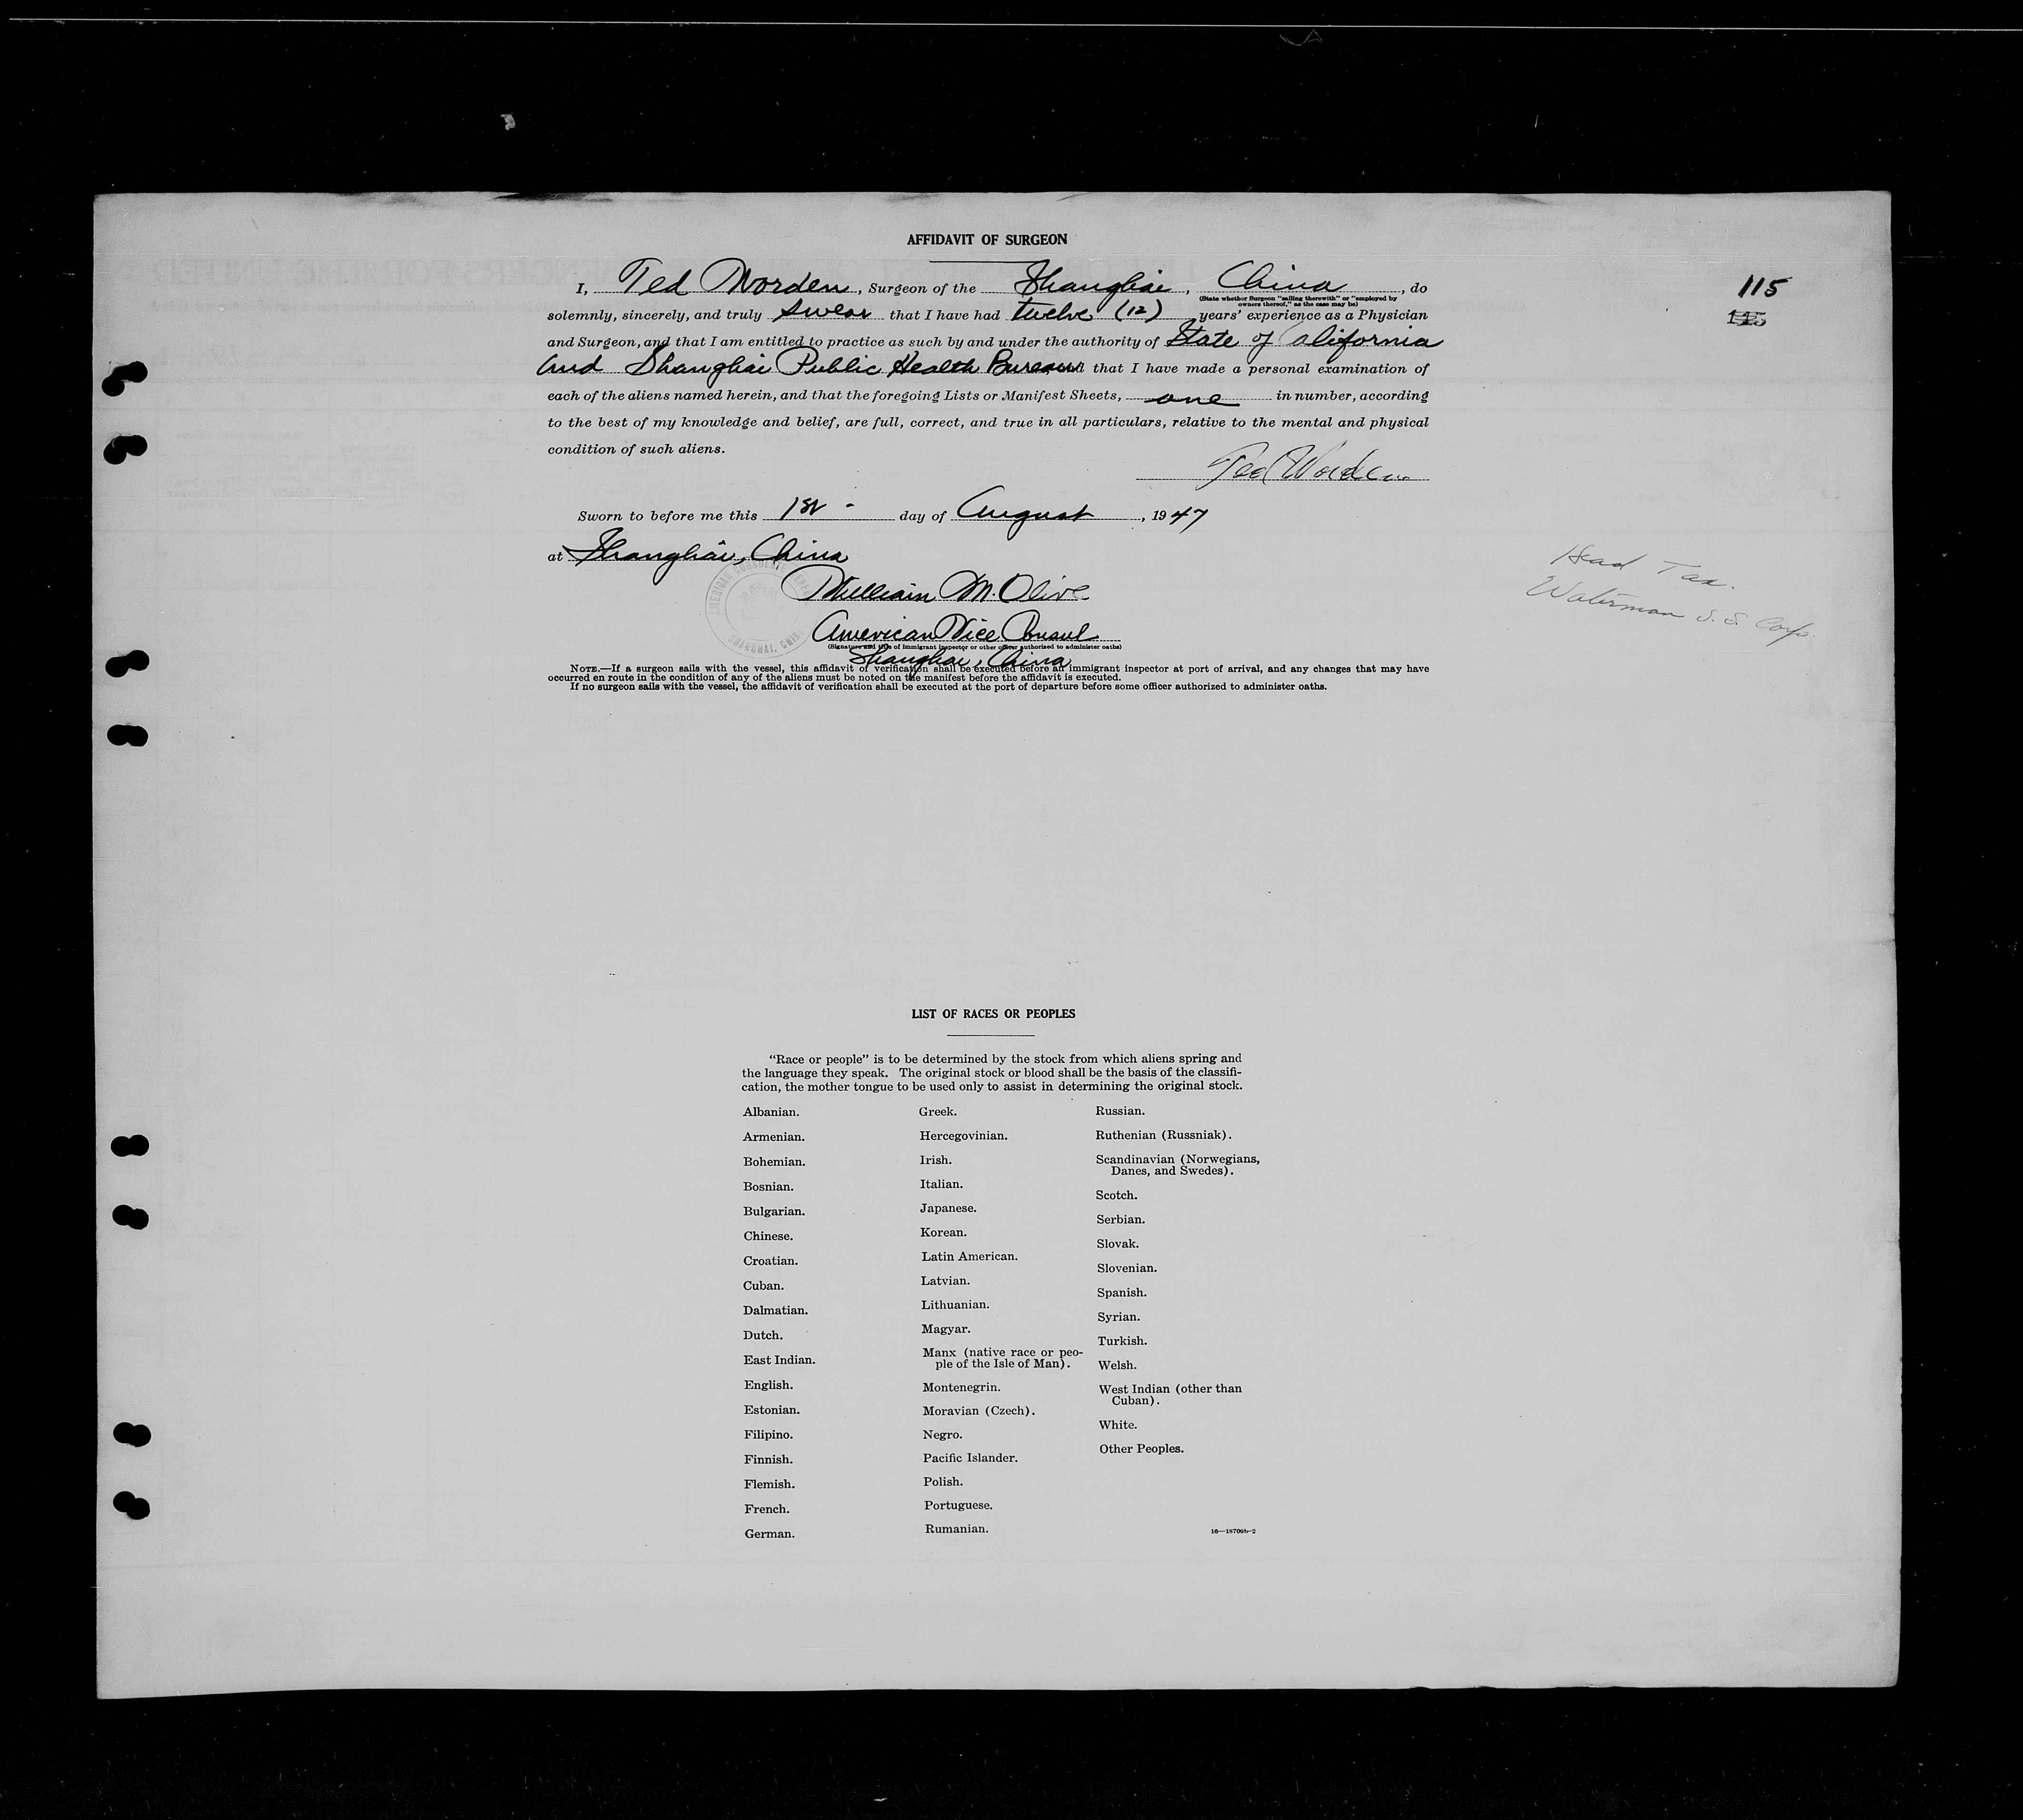 AFFIDAVIT OF SURGEON
I, Ted Worden, Surgeon of the Shanghai, China, do
(State whether Surgeon "sailing therewith" or "employed by
owners thereof," as the case may be)
115
solemnly, sincerely, and truly swear that I have had twelve (12) years' experience as a Physician
115
and Surgeon, and that I am entitled to practice as such by and under the authority of State of California
and Shanghai Public Health Bureau that I have made a personal examination of
each of the aliens named herein, and that the foregoing Lists or Manifest Sheets, one in number, according
to the best of my knowledge and belief, are full, correct, and true in all particulars, relative to the mental and physical
condition of such aliens.
Ted Worden
Sworn to before me this 1st - day of August, 1947
at Shanghai, China
AMERICAN CONSULATE GENERAL
SHANGHAI, CHINA
William M. Olive
American Vice Consul
(Signature and title of immigrant inspector or other officer authorized to administer oaths)
Shanghai, China
Head Tax.
Waterman S. S. Corp.
NOTE.—If a surgeon sails with the vessel, this affidavit of verification shall be executed before an immigrant inspector at port of arrival, and any changes that may have
occurred en route in the condition of any of the aliens must be noted on the manifest before the affidavit is executed.
If no surgeon sails with the vessel, the affidavit of verification shall be executed at the port of departure before some officer authorized to administer oaths.
LIST OF RACES OR PEOPLES
"Race or people" is to be determined by the stock from which aliens spring and
the language they speak. The original stock or blood shall be the basis of the classifi-
cation, the mother tongue to be used only to assist in determining the original stock.
Albanian.
Armenian.
Bohemian.
Bosnian.
Bulgarian.
Chinese.
Croatian.
Cuban.
Dalmatian.
Dutch.
East Indian.
English.
Estonian.
Filipino.
Finnish.
Flemish.
French.
German.
Greek.
Hercegovinian.
Irish.
Italian.
Japanese.
Korean.
Latin American.
Latvian.
Lithuanian.
Magyar.
Manx (native race or peo-
ple of the Isle of Man).
Montenegrin.
Moravian (Czech).
Negro.
Pacific Islander.
Polish.
Portuguese.
Rumanian.
Russian.
Ruthenian (Russniak).
Scandinavian (Norwegians,
Danes, and Swedes).
Scotch.
Serbian.
Slovak.
Slovenian.
Spanish.
Syrian.
Turkish.
Welsh.
West Indian (other than
Cuban).
White.
Other Peoples.